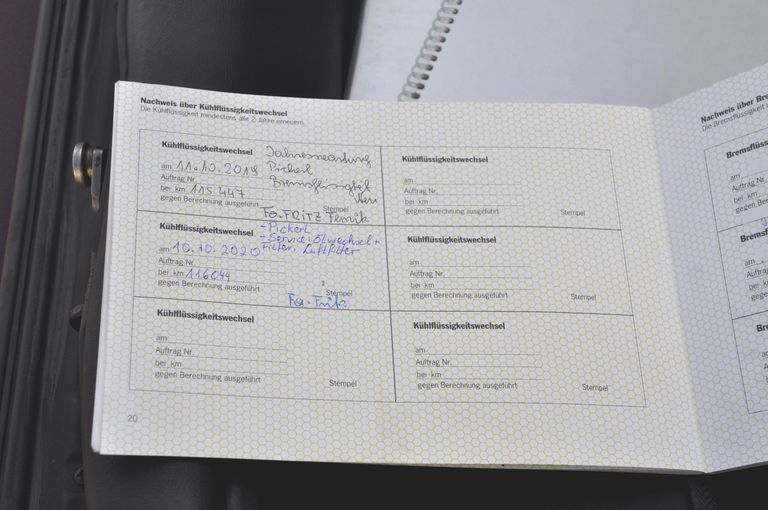 Nachweis über Kühlflüssigkeitswechsel
Die Kühlflüssigkeit mindestens alle 2 Jahre erneuern.
Kühlflüssigkeitswechsel
Jahreswartung
am 11.10.2019 Pickerl
Auftrag Nr. Bremsflüssigkeit
bei km 115 447 Neu
gegen Berechnung ausgeführt Stempel
Fa. FRITZ
Kühlflüssigkeitswechsel - Pickerl
- Service: Ölwechsel +
am 10.10.2020 Filter, Luftfilter
Auftrag Nr.
bei km 116044
gegen Berechnung ausgeführt Stempel
Fa. Fritz
Kühlflüssigkeitswechsel
am
Auftrag Nr.
bei km
gegen Berechnung ausgeführt Stempel
Kühlflüssigkeitswechsel
am
Auftrag Nr.
bei km
gegen Berechnung ausgeführt Stempel
Kühlflüssigkeitswechsel
am
Auftrag Nr.
bei km
gegen Berechnung ausgeführt Stempel
Kühlflüssigkeitswechsel
am
Auftrag Nr.
bei km
gegen Berechnung ausgeführt Stempel
20
Nachweis über
Die Bremsflüssigkeit
am
Auftrag Nr.
bei km
am
Auftrag Nr.
bei km